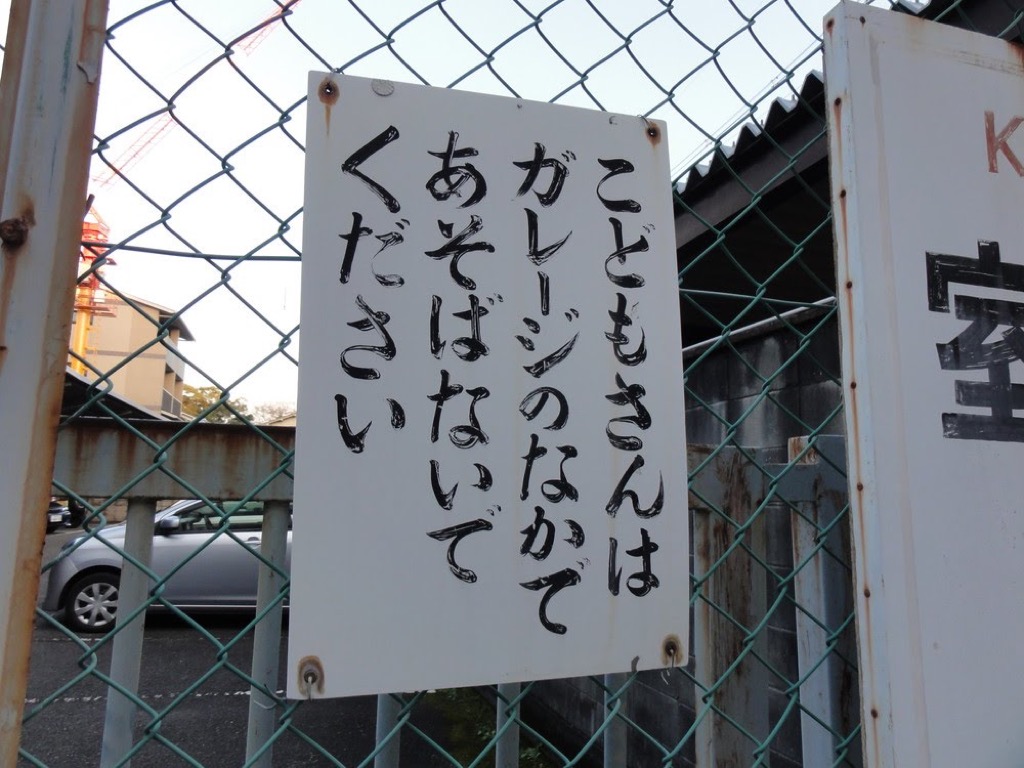 こどもさんは
ガレージのなかで
あそばないで
ください
K
室